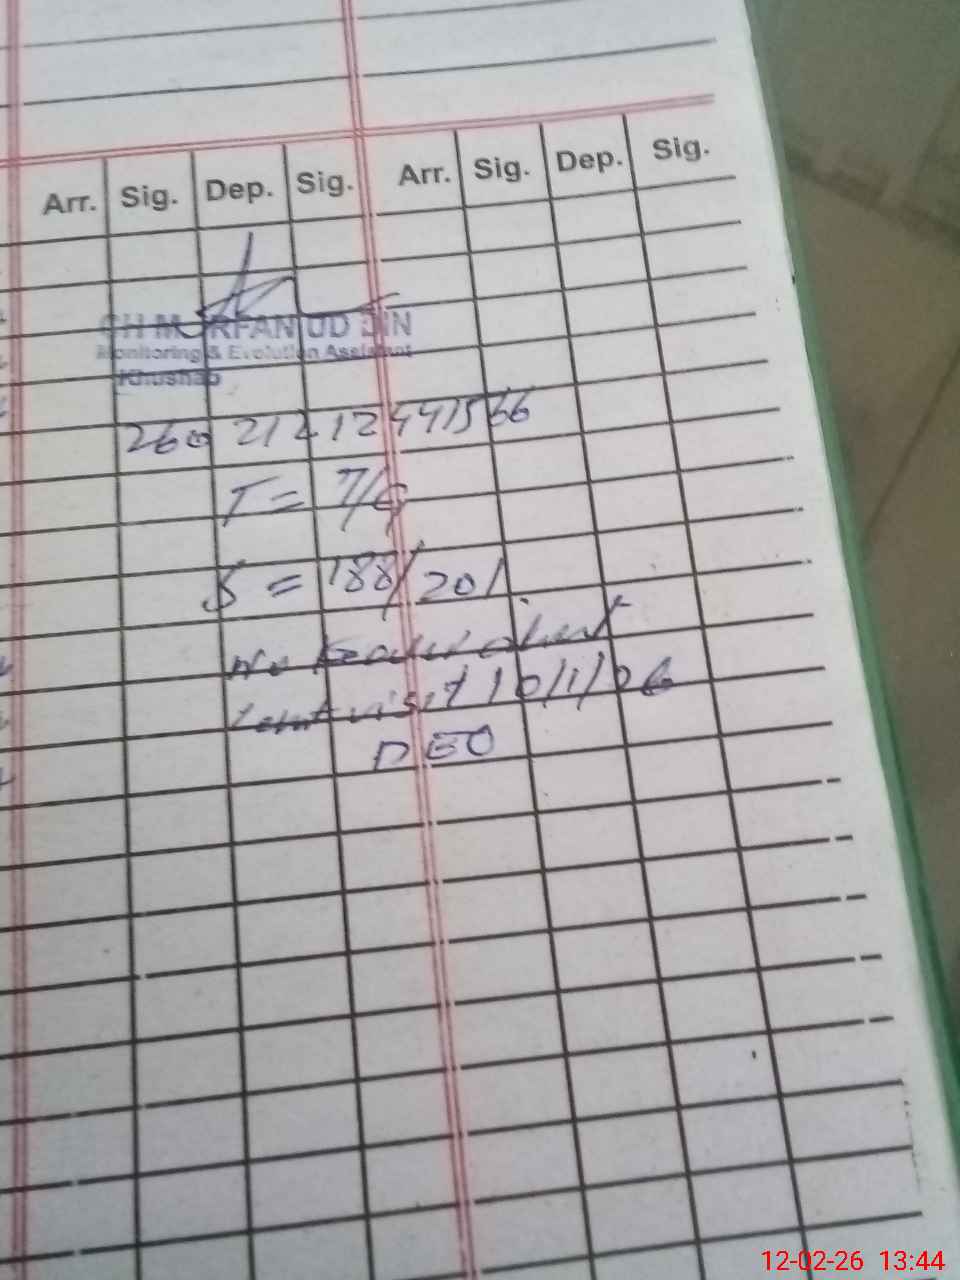 Arr. Sig. Dep. Sig. Arr. Sig. Dep. Sig.
CH M IRFAN UD DIN
Monitoring & Evolution Assistant
Khushab
T = 7/6
S = 188/201
visit 10/1/26
DEO
12-02-26 13:44